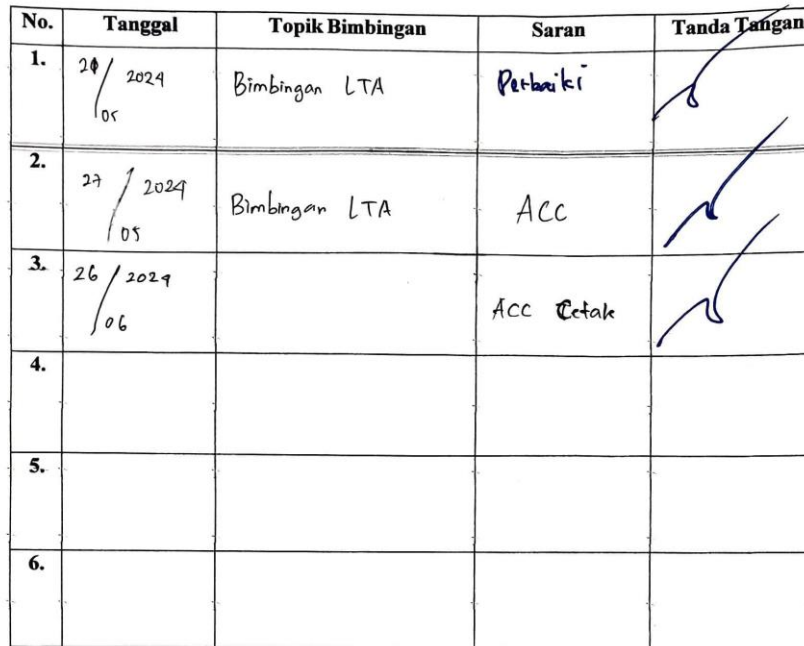 No. Tanggal Topik Bimbingan Saran Tanda Tangan
1. 2024 Bimbingan LTA Perbaiki
05
2. 27 / 2024 Bimbingan LTA ACC
05
3. 26 / 2024 ACC Cetak
06
4.
5.
6.